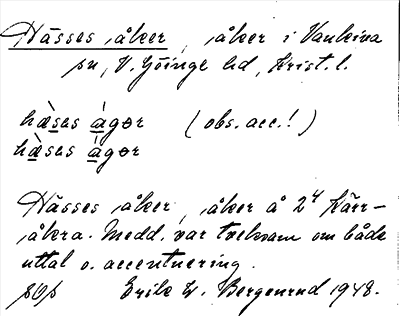 Hässes åker, åker i Vankiva
sn, V. Göinge hd, Krist. l.
hàsas ágər (obs. acc.!)
hàsəs ágər
Hässes åker, åker å 2⁴ Kärr-
åkra. Medd. var tveksam om både
uttal o. accentuering.
Erik W. Bergenrud 1948.